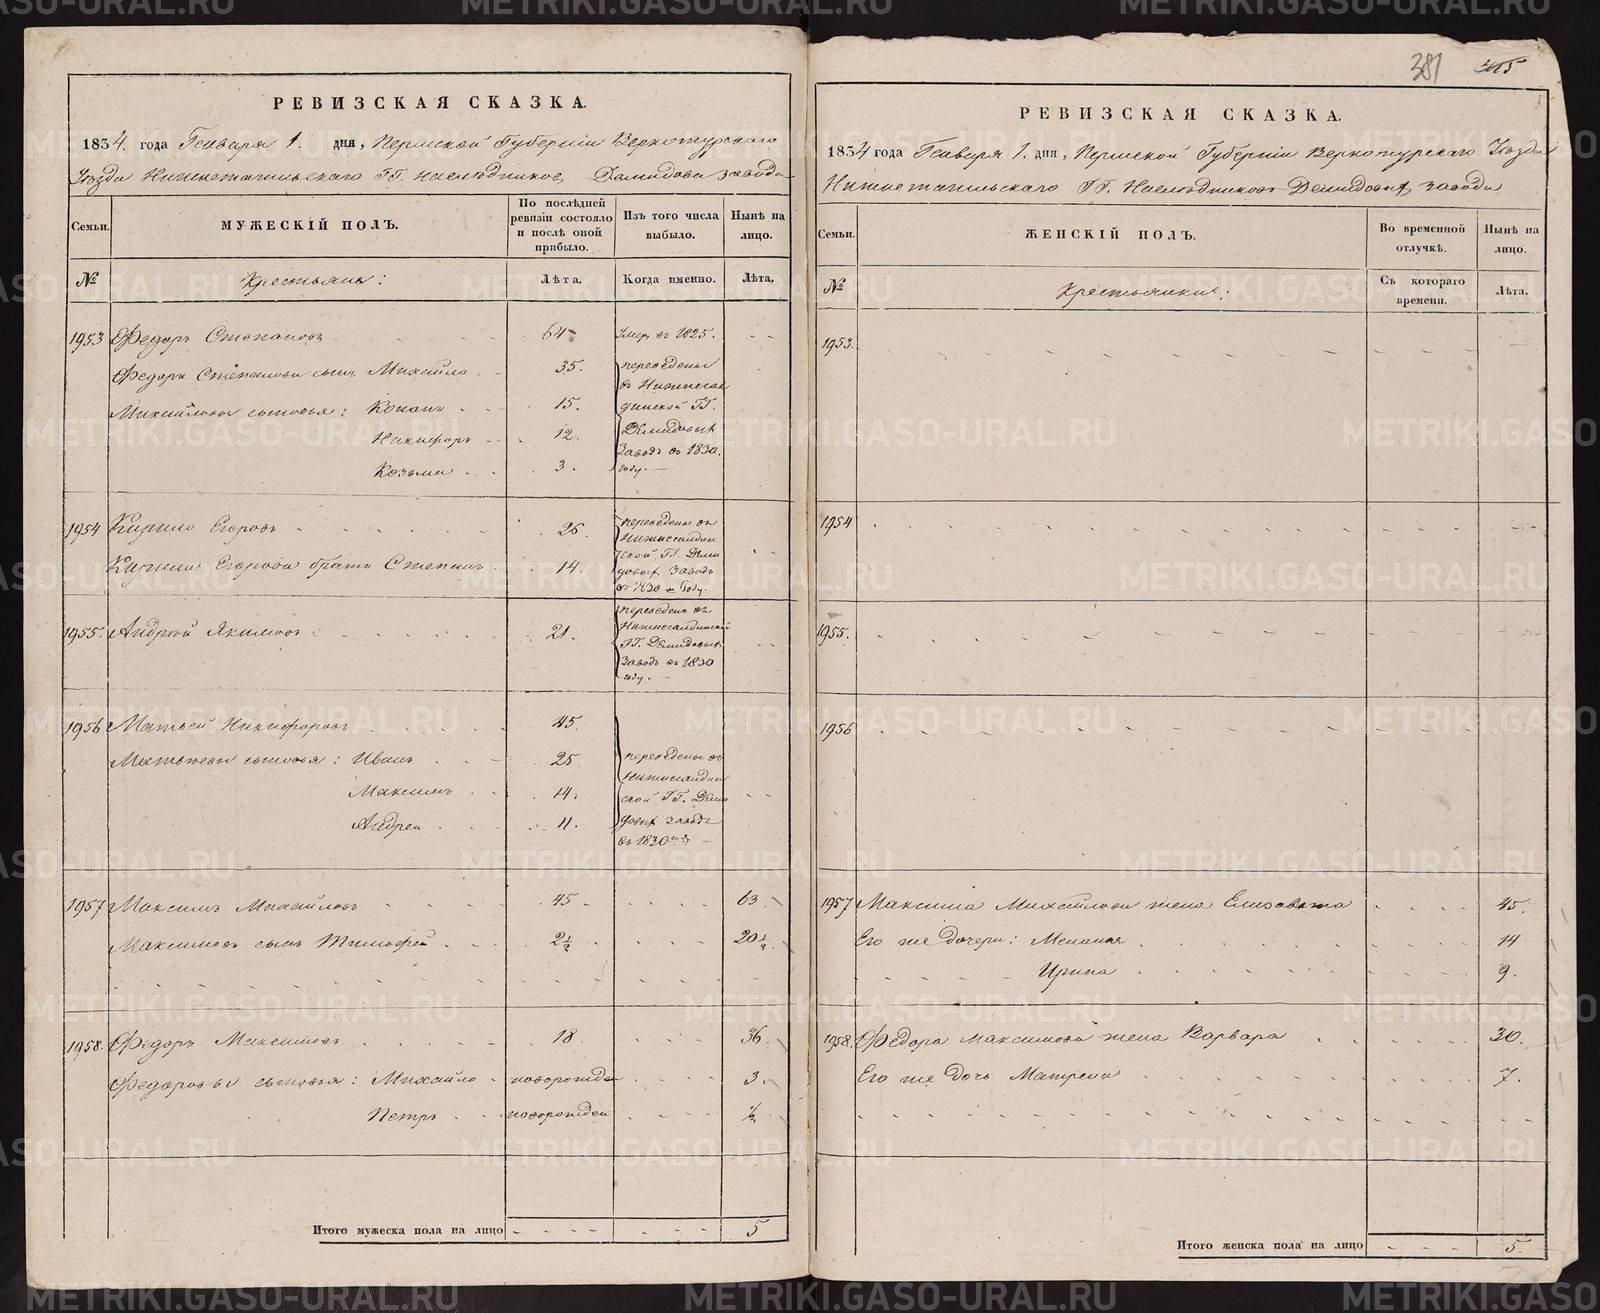 381
РЕВИЗСКАЯ СКАЗКА.
1834. года Генваря 1. дня, Пермской Губерніи Верхотурскаго
Уѣзда Нижнетагильскаго ГГ. Наслѣдниковъ Демидова завода
Семьи.
МУЖЕСКІЙ ПОЛЪ.
По послѣдней ревизіи состояло и послѣ оной прибыло.
Изъ того числа выбыло.
Нынѣ на лицо.
№
Крестьяне:
Лѣта.
Когда именно.
Лѣта.
1953 Федоръ Степановъ 64 Умеръ въ 1825.
Федора Степанова сынъ Михайло 35. переведены
въ Нижнесал
Михайловы сыновья: Кононъ 15. динской ГГ.
Никифоръ 12. Демидовыхъ
Заводъ въ 1830.
Козьма 3. году.
1954 Кирило Егоровъ 26. переведены въ
Нижнесалдин
ской ГГ. Деми
Кирила Егорова братъ Степанъ 14. довыхъ Заводъ
въ 1830 м Году.
1955. Андрей Якимовъ 21. переведенъ въ
Нижнесалдинской
ГГ. Демидовыхъ
Заводъ въ 1830
году.
1956 Матвей Никифоровъ 45.
Матвеевы сыновья: Иванъ 25. переведены въ
Нижнесалдин
Максимъ 14. ской ГГ. Деми
Андрей 11. довыхъ заводъ
въ 1830
1957 Максимъ Михайловъ 45 63
Максимовъ сынъ Тимофей 2½ 20½
1958. Федоръ Максимовъ 18. 36
Федоровы сыновья: Михайло новорожден 3.
Петръ новорожден ½
Итого мужеска пола на лицо 5
РЕВИЗСКАЯ СКАЗКА.
1834 года Генваря 1. дня, Пермской Губерніи Верхотурскаго Уѣзда
Нижнетагильскаго ГГ. Наслѣдниковъ Демидовыхъ завода
Семьи.
ЖЕНСКІЙ ПОЛЪ.
Во временной отлучкѣ.
Нынѣ на лицо.
№
Крестьянки:
Съ котораго времени.
Лѣта.
1953.
1954
1955.
1956
1957 Максима Михайлова жена Елизавета 45.
Его же дочери: Меланья 14
Ирина 9.
1958. Федора Максимова жена Варвара 30.
Его же дочь Матрена 7.
Итого женска пола на лицо 5.
METRIKI.GASO-URAL.RU